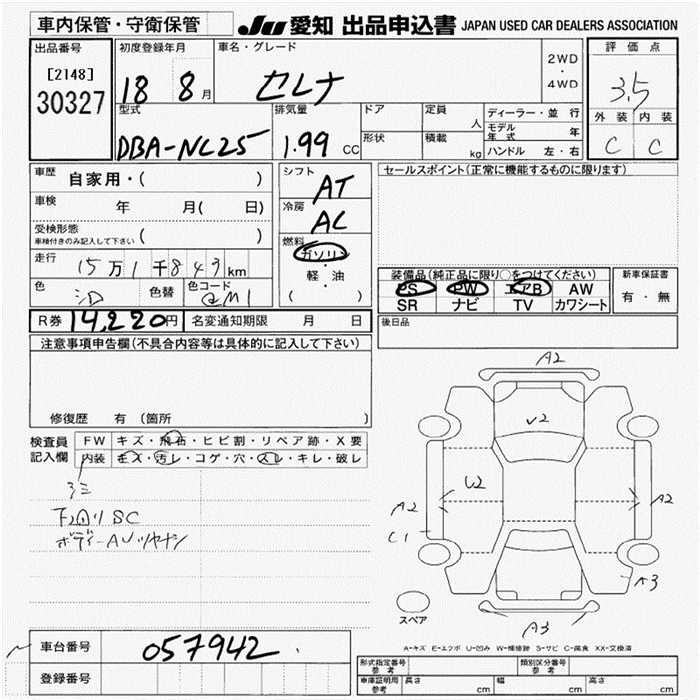 車内保管・守衛保管
JU 愛知 出品申込書 JAPAN USED CAR DEALERS ASSOCIATION
出品番号
[2148]
30327
初度登録年月
18 8月
車名・グレード
セレナ
2WD
・
4WD
評価点
3.5
外装 内装
C C
型式
DBA-NC25
排気量
1.99 CC
ドア
形状
定員 人
積載 kg
ディーラー・並行
モデル年式 年
ハンドル 左・右
車歴 自家用・( )
車検 年 月( 日)
受検形態
車検付きのみ記入して下さい ( )
走行 15万1千843km
色 色替 色コード
シフト
AT
冷房
AC
燃料
ガソリン
・
軽・油
( )
セールスポイント(正常に機能するものに限ります)
装備品(純正品に限り○をつけてください)
PS PW エアB AW
SR ナビ TV カワシート
新車保証書
有・無
後日品
R券 14,220円 名変通知期限 月 日
注意事項申告欄(不具合内容等は具体的に記入して下さい)
修復歴 有(箇所 )
検査員
記入欄
FW キズ・飛石・ヒビ割・リペア跡・X要
内装 キズ・汚レ・コゲ・穴・スレ・キレ・破レ
下回りSC
A2
V2
U2
A2
C1
A2
A3
A3
スペア
A-キズ E-エクボ U-凹み W-補修跡 S-サビ C-腐食 XX-交換済
車台番号 057942
登録番号
形式指定番号
参考
類別区分番号
参考
車庫証明用
参考
長さ cm 幅 cm 高さ cm